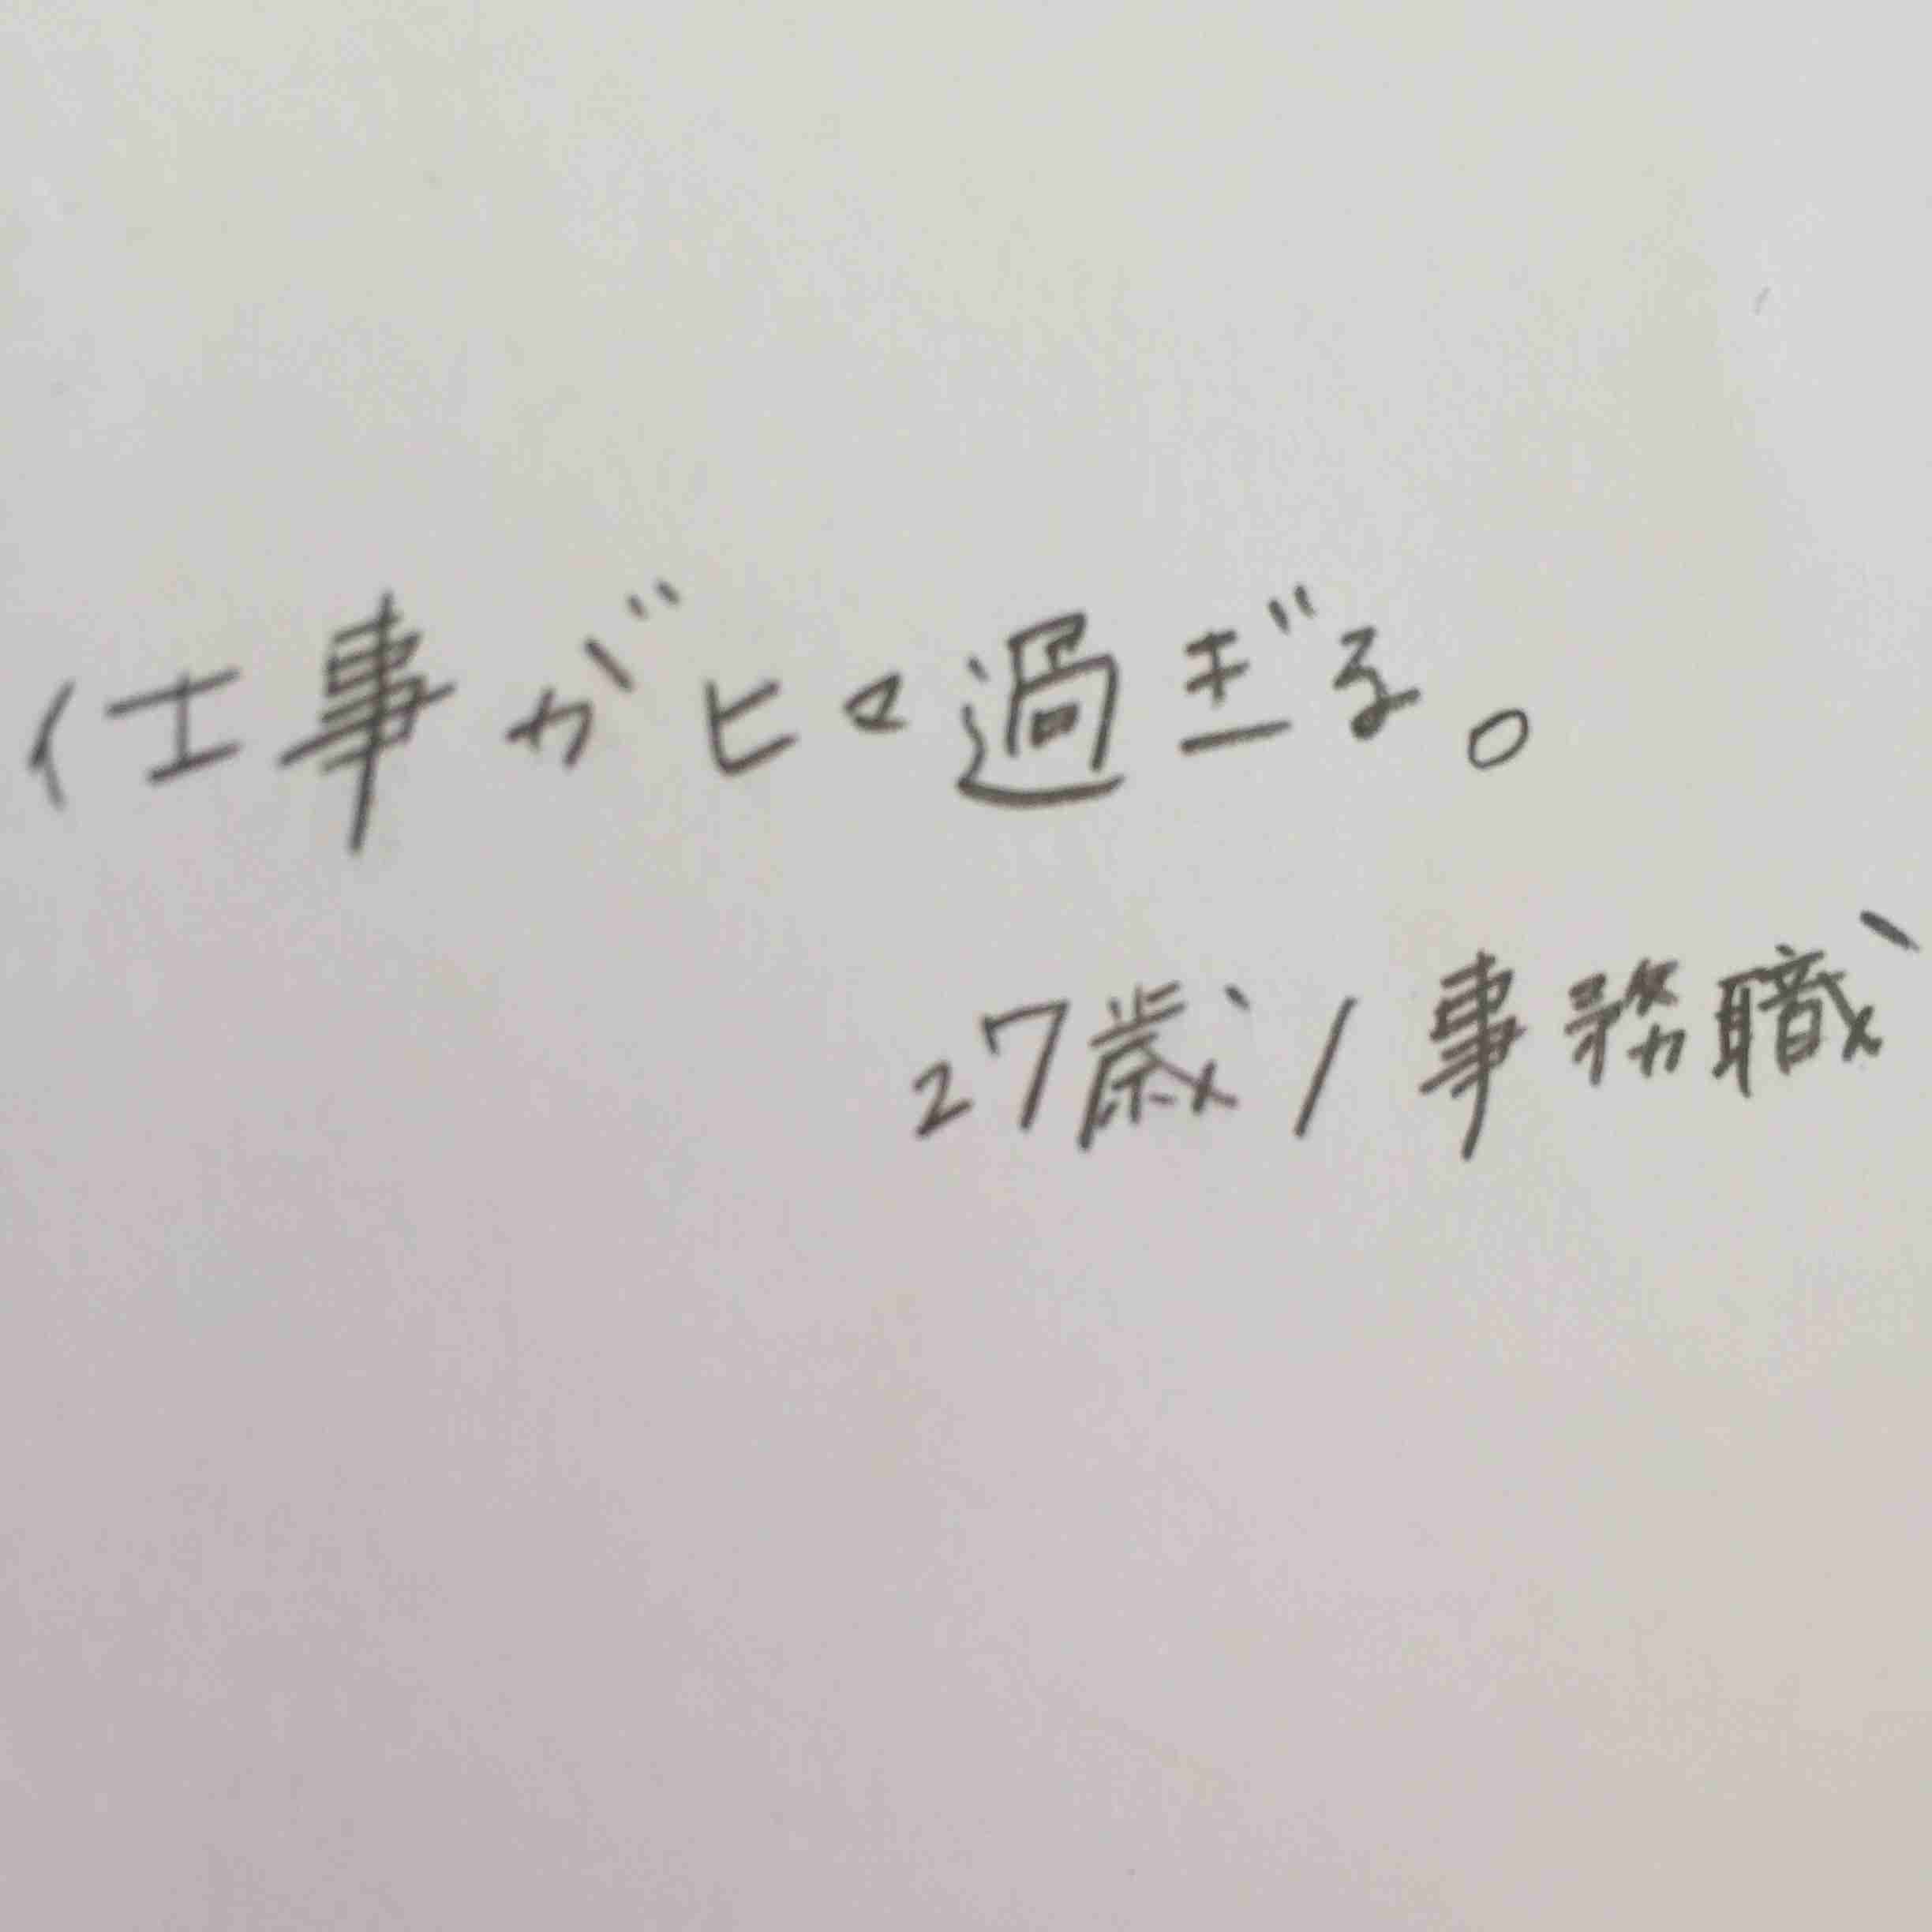 仕事がヒマ過ぎる。
27歳/事務職